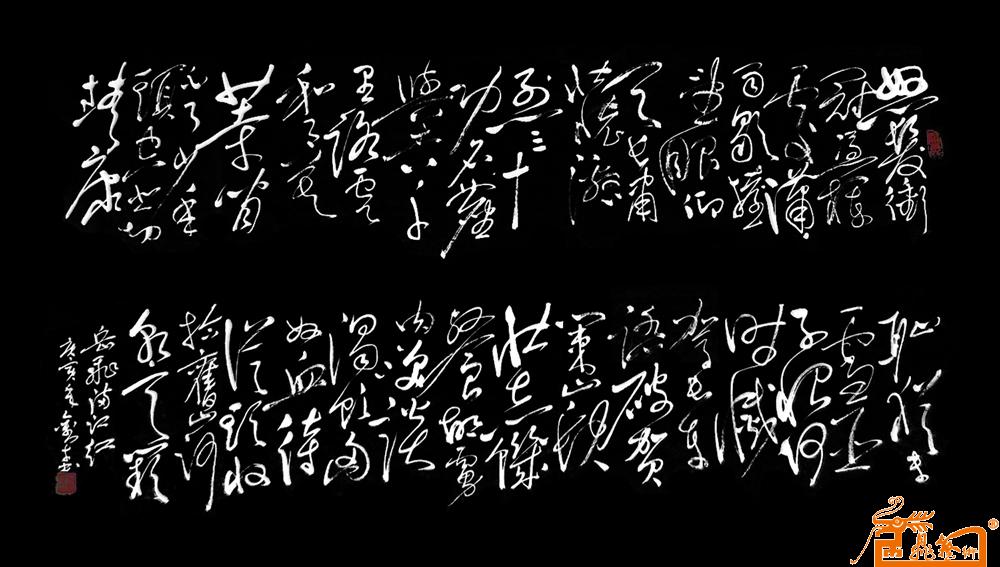 怒髮衝
冠憑欄
處瀟
雨歇擡
望眼仰
天長嘯
壯懷激
烈三十
功名塵
與土八千
里路雲
和月莫
等閒
白了少年
頭空悲切
靖康
耻猶未
雪臣
子恨何
時滅
駕長車
踏破賀
蘭山缺
壯志饑
餐胡虜
肉笑談
渴飲匈
奴血待
從頭收
拾舊山河
朝天闕
岳飛滿江紅